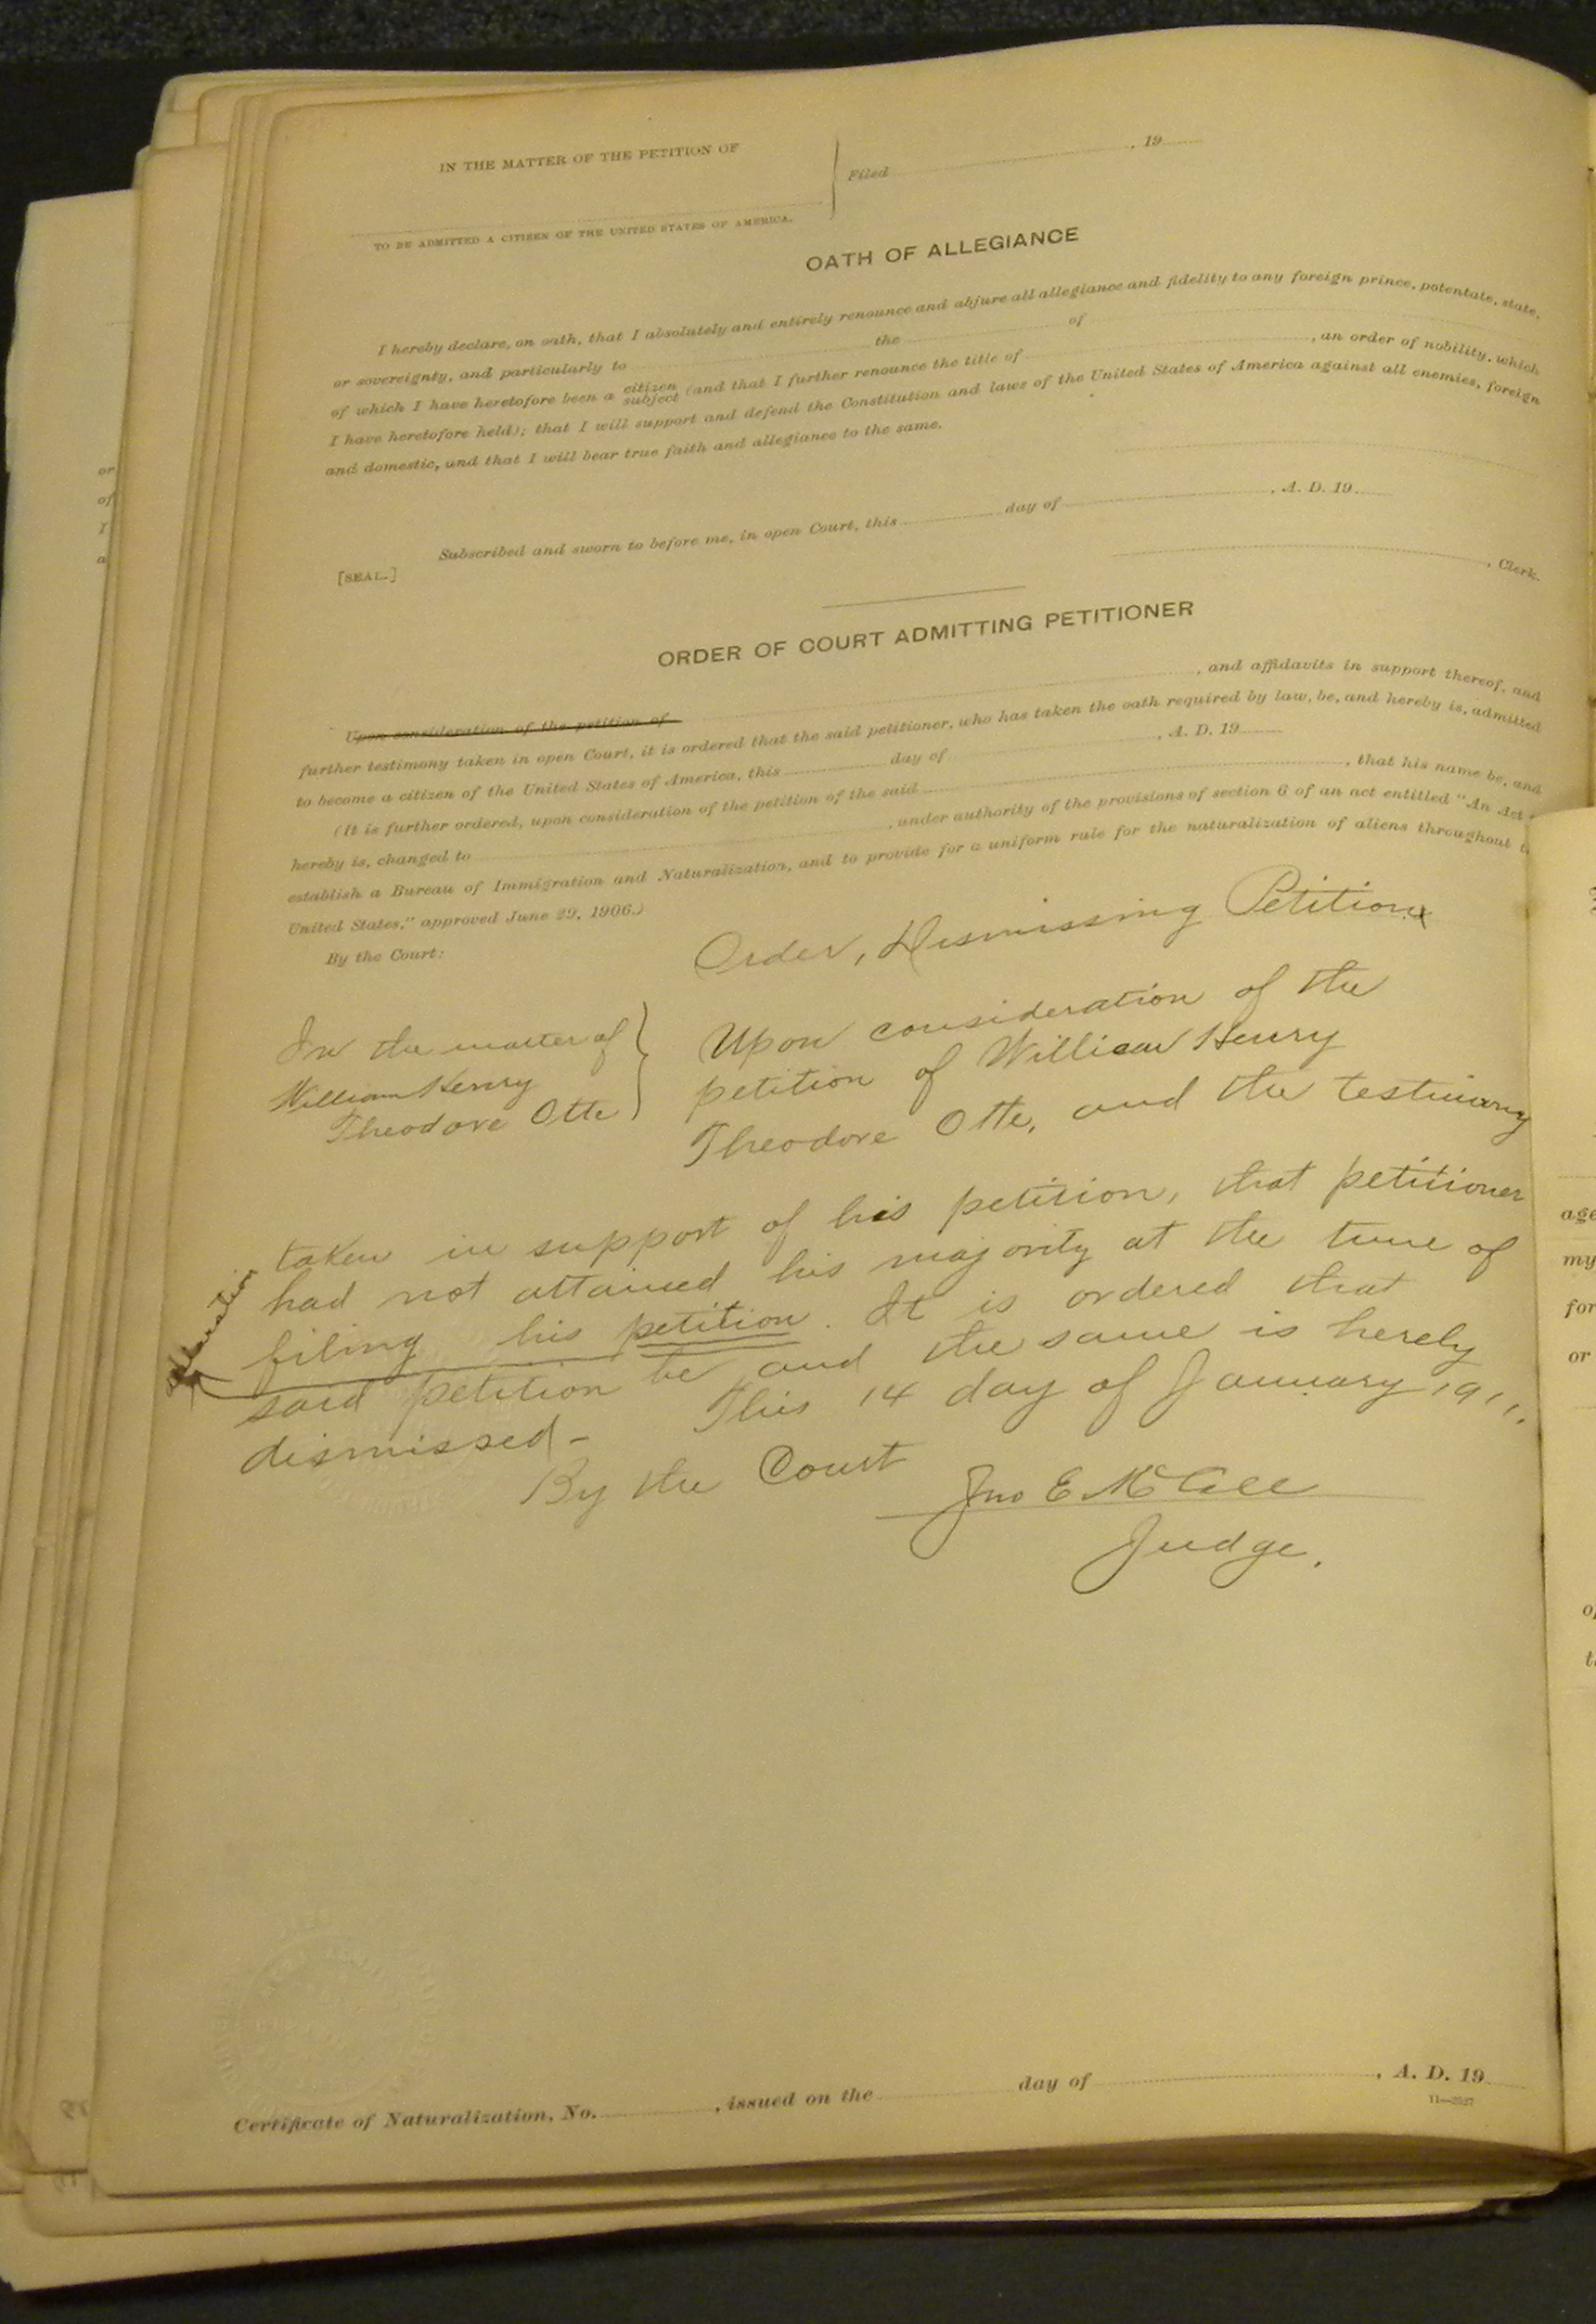 IN THE MATTER OF THE PETITION OF
Filed , 19
TO BE ADMITTED A CITIZEN OF THE UNITED STATES OF AMERICA.
OATH OF ALLEGIANCE
I hereby declare, on oath, that I absolutely and entirely renounce and abjure all allegiance and fidelity to any foreign prince, potentate, state,
or sovereignty, and particularly to the of
of which I have heretofore been a citizen subject (and that I further renounce the title of , an order of nobility, which
I have heretofore held); that I will support and defend the Constitution and laws of the United States of America against all enemies, foreign
and domestic, and that I will bear true faith and allegiance to the same.
Subscribed and sworn to before me, in open Court, this day of , A. D. 19
[SEAL.]
, Clerk.
ORDER OF COURT ADMITTING PETITIONER
Upon consideration of the petition of , and affidavits in support thereof, and
further testimony taken in open Court, it is ordered that the said petitioner, who has taken the oath required by law, be, and hereby is, admitted
to become a citizen of the United States of America, this day of , A. D. 19
(It is further ordered, upon consideration of the petition of the said , that his name be, and
hereby is, changed to , under authority of the provisions of section 6 of an act entitled "An Act
establish a Bureau of Immigration and Naturalization, and to provide for a uniform rule for the naturalization of aliens throughout
United States," approved June 29, 1906.)
By the Court:
Order, Dismissing Petition
In the matter of
William Henry
Theodore Otte
Upon consideration of the
petition of William Henry
Theodore Otte, and the testimony
taken in support of his petition, that petitioner
had not attained his majority at the time of
filing his petition. It is ordered that
said petition be and the same is hereby
dismissed - This 14 day of January 1911.
By the Court
Jno E McCall
Judge.
Certificate of Naturalization, No. , issued on the day of , A. D. 19
11—2527
or
of
I
a
age
my
for
or